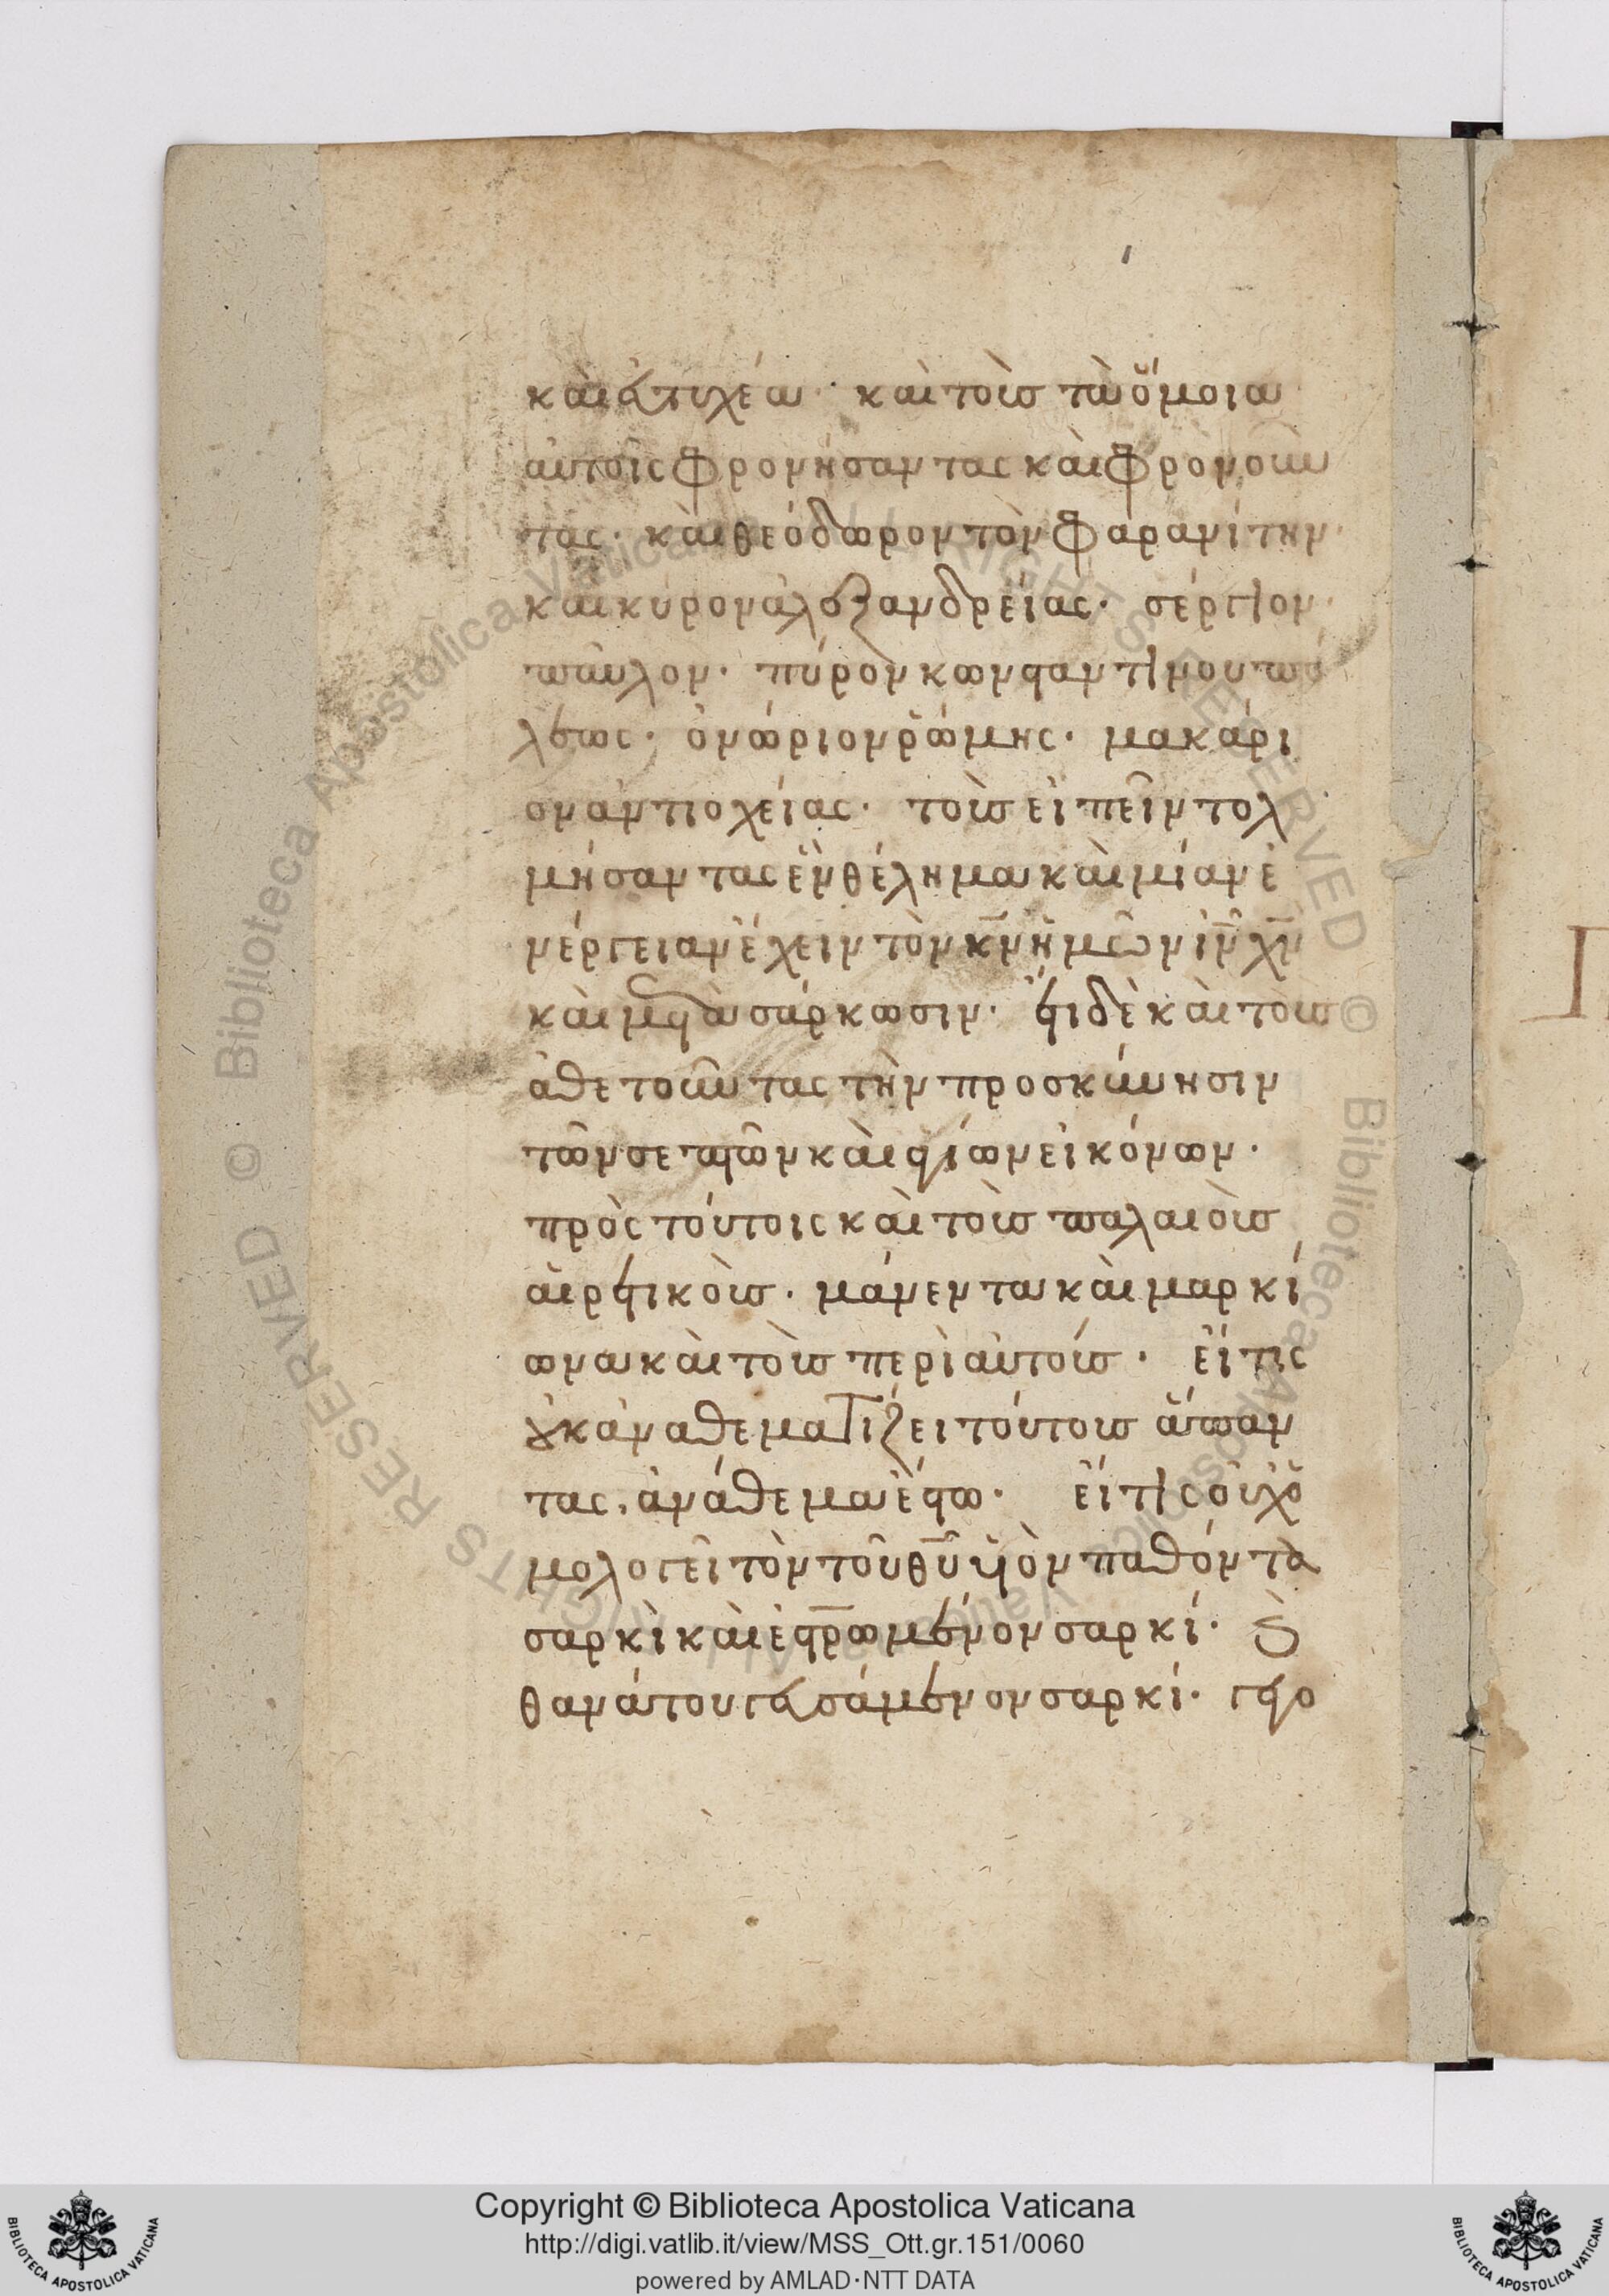 καὶ εὐτυχέα· καὶ τοὺς τὰ ὅμοια
αὐτοῖς φρονήσαντας καὶ φρονοῦν
τας· καὶ θεόδωρον τὸν φαρανίτην·
καὶ κύρον ἀλεξανδρείας· σέργιον·
παῦλον· πύρον κωνσταντίνουπό
λεως· ὀνώριον ῥώμης· μακάρι
ον ἀντιοχείας· τοὺς εἰπεῖν τολ
μήσαντας ἓν θέλημα καὶ μίαν ἐ
νέργειαν ἔχειν τὸν κ̅ν̅ ἡμῶν ι̅ν̅ χ̅ν̅
καὶ μετὰ σάρκωσιν· ἔτι δὲ καὶ τοὺς
ἀθετοῦντας τὴν προσκύνησιν
τῶν σεπτῶν καὶ ἁγίων εἰκόνων·
πρὸς τούτοις καὶ τοὺς παλαιοὺς
αἱρετικοὺς· μάνεντα καὶ μαρκί
ωνα καὶ τοὺς περὶ αὐτούς· εἴ τις
οὐκ ἀναθεματίζει τούτους ἅπαν
τας, ἀνάθεμα ἔστω· εἴ τις οὐχ ὁ
μολογεῖ τὸν τοῦ θ̅υ̅ υἱὸν παθόντα
σαρκὶ καὶ ἐσ̅τ̅ρ̅ωμένον σαρκί· καὶ
θανάτου γευσάμενον σαρκί· γεγο
Copyright © Biblioteca Apostolica Vaticana
http://digi.vatlib.it/view/MSS_Ott.gr.151/0060
powered by AMLAD·NTT DATA